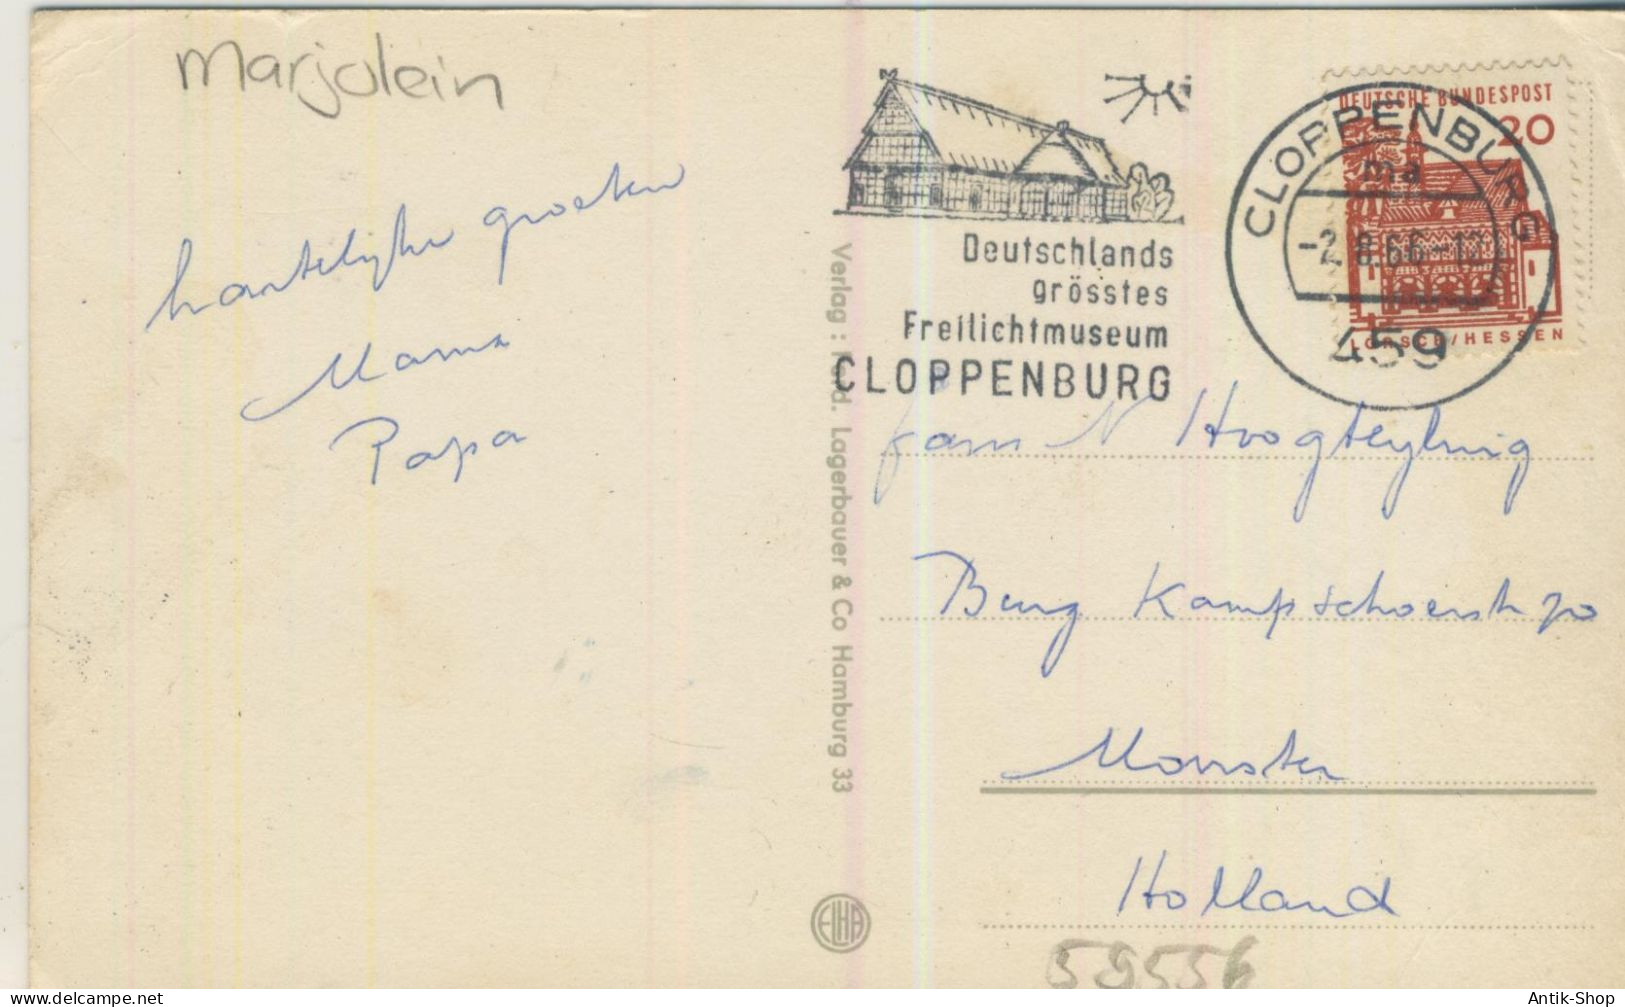 Marjolein
hartelijke groeten
Mama
Papa
Verlag: Ferd. Lagerbauer & Co Hamburg 33
ELHA
Deutschlands
grösstes
Freilichtmuseum
CLOPPENBURG
DEUTSCHE BUNDESPOST
20
LORSCH/HESSEN
CLOPPENBURG
ma
-2.8.66-17
459
fam N Hoogteyling
Burg Kampschoerstr 70
Monster
Holland
59556
www.delcampe.net
Antik-Shop